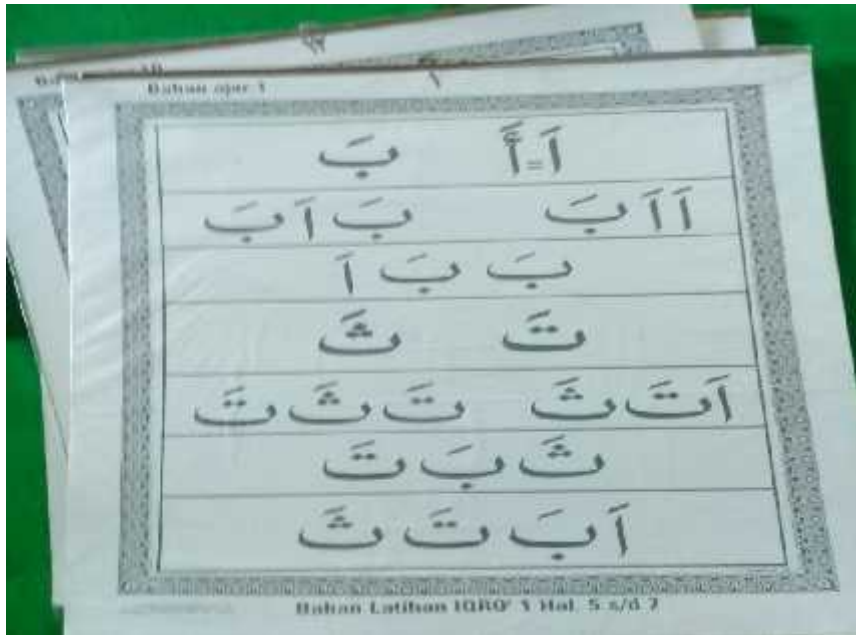 Bahan ajar 1
١
اَ = أَ بَ
اَ اَ بَ بَ اَ بَ
بَ بَ اَ
تَ ثَ
اَ تَ ثَ تَ ثَ تَ
ثَ بَ تَ
اَ بَ تَ ثَ
Bahan Latihan IQRO' 1 Hal. 5 s/d 7